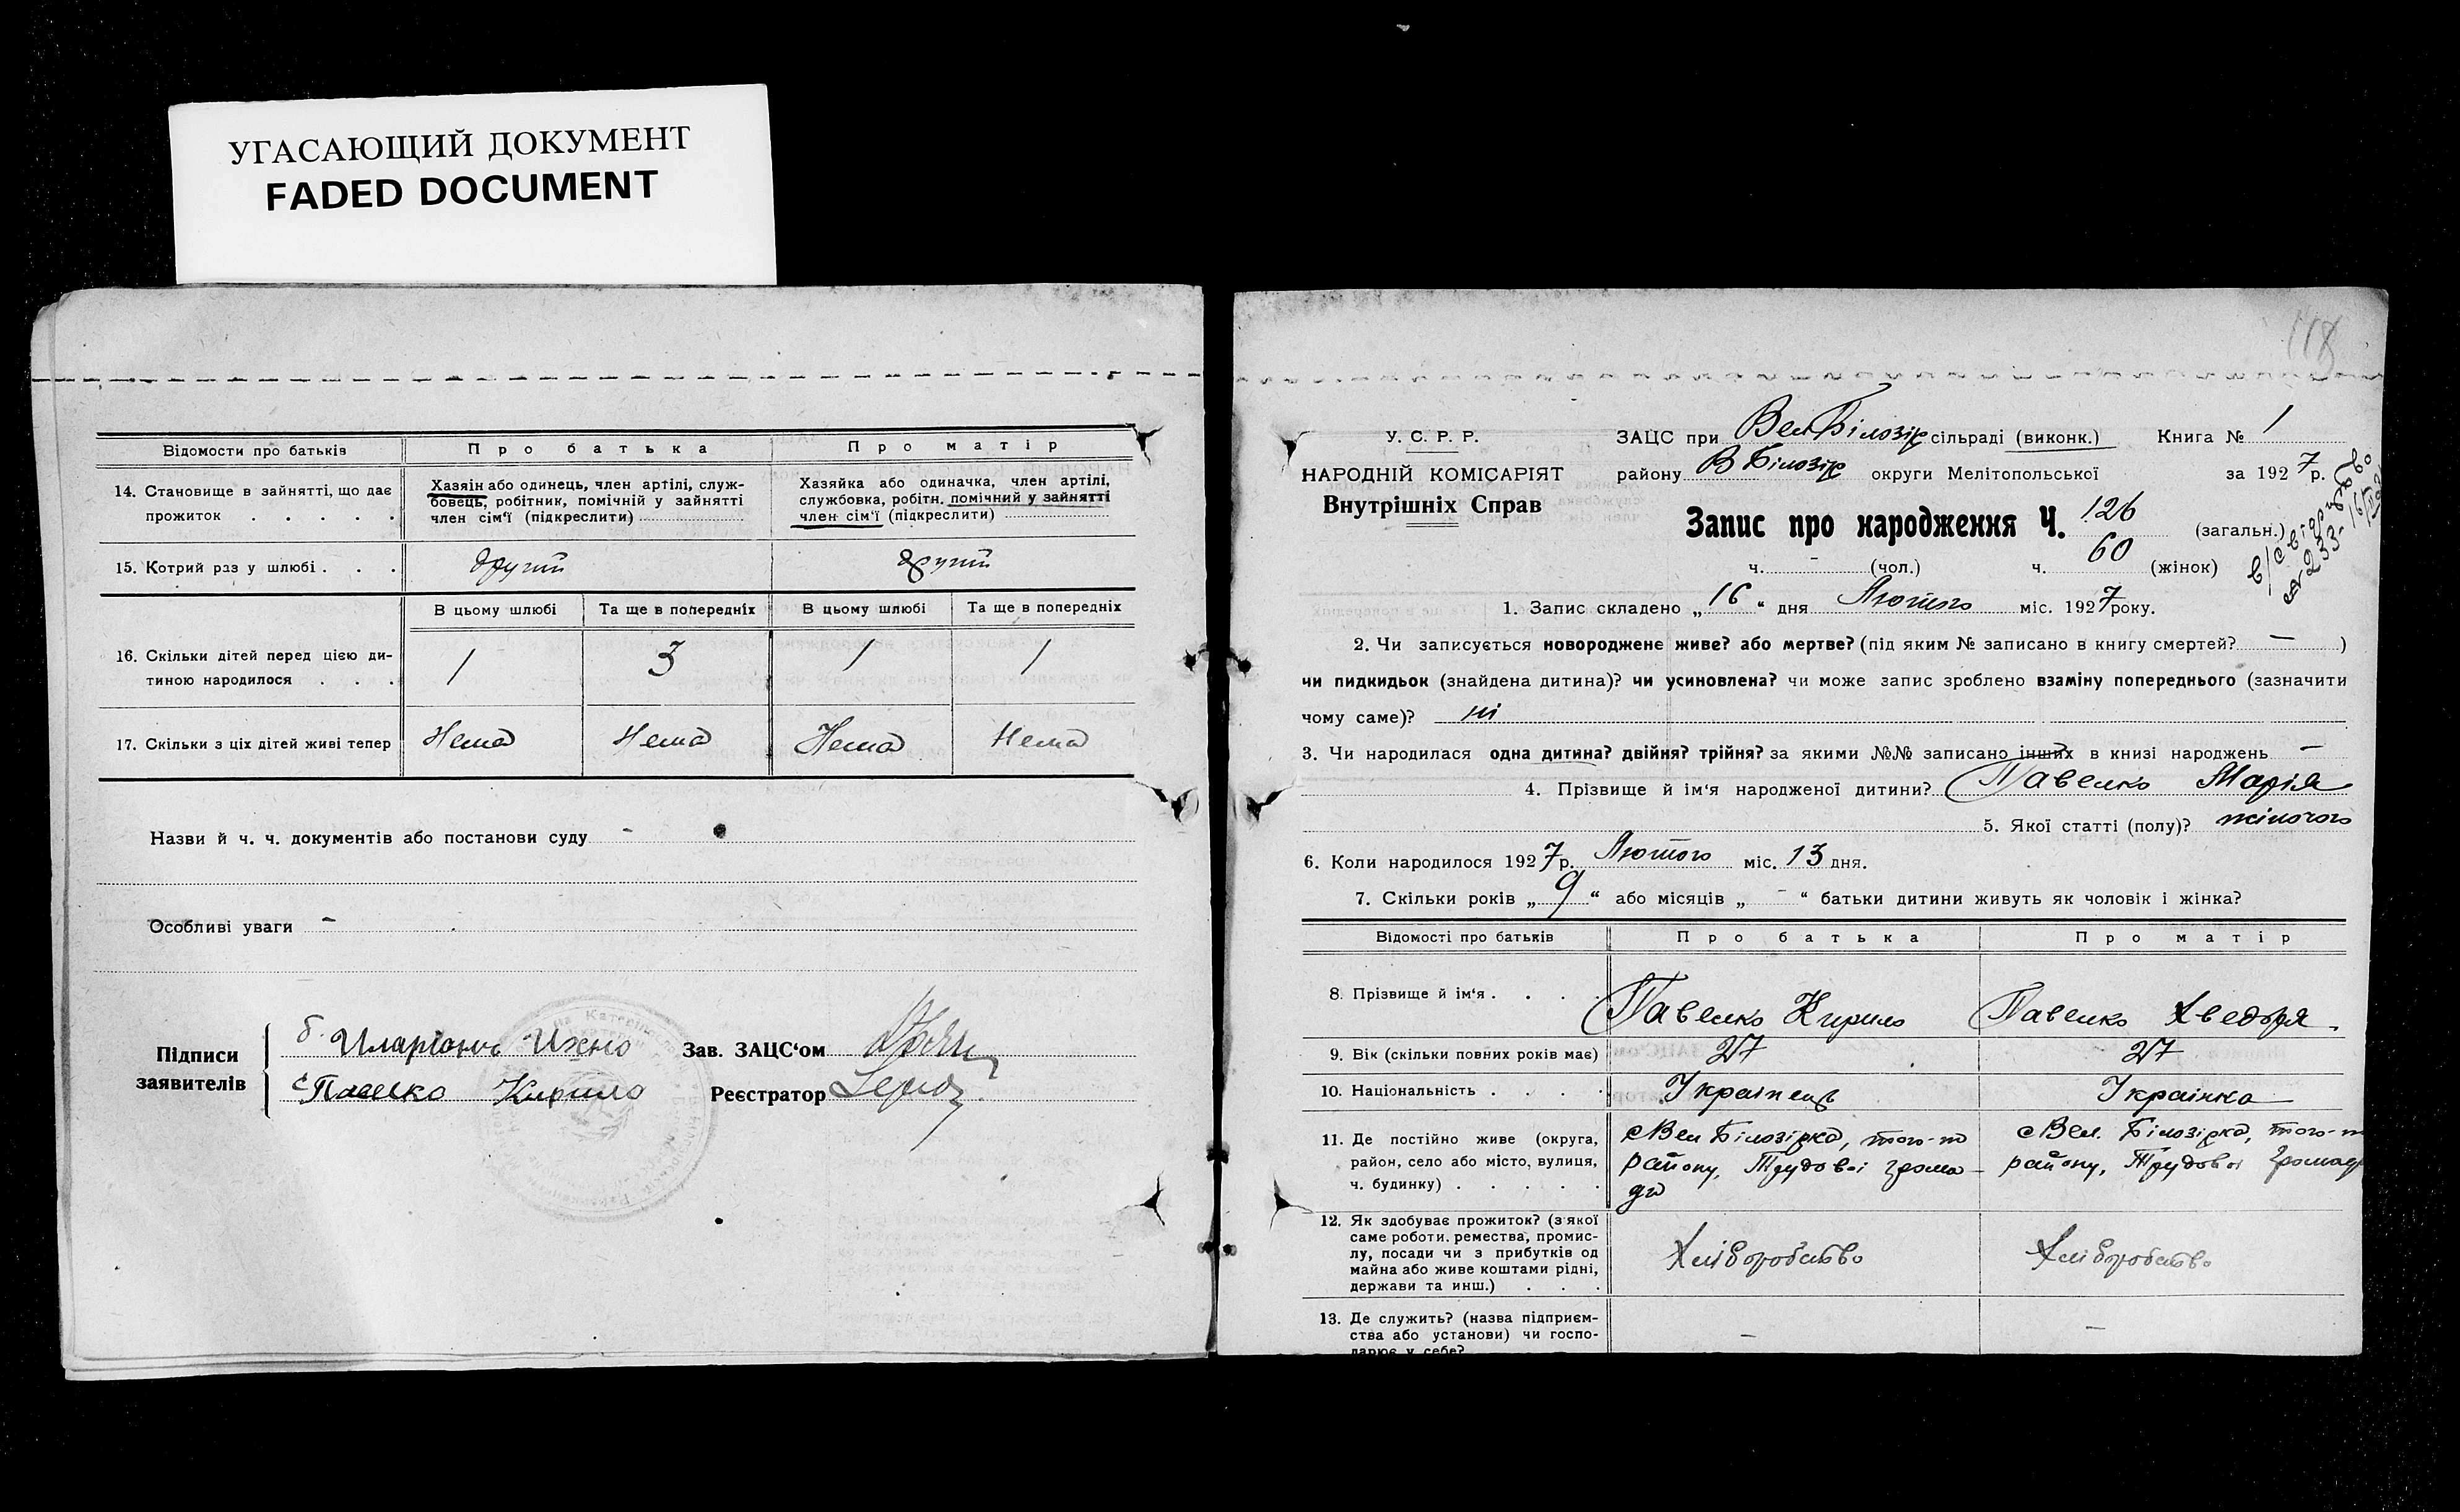 УГАСАЮЩИЙ ДОКУМЕНТ
FADED DOCUMENT
Відомости про батьків
Про батька
Про матір
14. Становище в зайнятті, що дає
прожиток . . . . .
Хазяін або одинець, член артілі, служ-
бовець, робітник, помічній у зайнятті
член сім'ї (підкреслити)
Хазяйка або одиначка, член артілі,
службовка, робітн. помічний у зайнятті
член сім'ї (підкреслити)
15. Котрий раз у шлюбі . . .
другий
другий
В цьому шлюбі
Та ще в попередніх
В цьому шлюбі
Та ще в попередніх
16. Скільки дітей перед цією ди-
тиною народилося . . .
1
3
1
1
17. Скільки з ціх дітей живі тепер
Нема
Нема
Нема
Нема
Назви й ч. ч. документів або постанови суду -
Особливі уваги -
Підписи
заявителів
Иларіонъ Ихно
Павелко Кирило
Зав. ЗАЦС'ом
Реєстратор
118
У. С. Р. Р.
НАРОДНІЙ КОМІСАРІЯТ
Внутрішніх Справ
ЗАЦС при Вел Білозір сільраді (виконк.) Книга № 1
району В Білозір округи Мелітопольської за 1927 р.
Запис про народження Ч. 126 (загальн.)
ч. - (чол.) ч. 60 (жінок)
№ 233-
1. Запис складено „16“ дня Лютого міс. 1927 року.
2. Чи записується новороджене живе? або мертве? (під яким № записано в книгу смертей? — )
чи пидкидьок (знайдена дитина)? чи усиновлена? чи може запис зроблено взаміну попереднього (зазначити
чому саме)? ні
3. Чи народилася одна дитина? двійня? трійня? за якими №№ записано інших в книзі народжень -
4. Прізвище й ім'я народженої дитини? Павелко Марія
5. Якої статті (полу)? жіночого
6. Коли народилося 1927 р. Лютого міс. 13 дня.
7. Скільки років „9“ або місяців „-“ батьки дитини живуть як чоловік і жінка?
Відомості про батьків
Про батька
Про матір
8. Прізвище й ім'я . . . .
Павелко Кирило
Павелко Хведора
9. Вік (скільки повних років має)
27
27
10. Національність . . . .
Українець
Українка
11. Де постійно живе (округа,
район, село або місто, вулиця,
ч. будинку) . . . . .
с Вел Білозірка, того-ж
району, Трудової грома-
ди
с Вел. Білозірка, того-ж
району, Трудової громади
12. Як здобуває прожиток? (з якої
саме роботи. ремества, промис-
лу, посади чи з прибутків од
майна або живе коштами рідні,
держави та инш.) . . .
Хліборобство
Хліборобство
13. Де служить? (назва підприєм-
ства або установи) чи госпо-
дарює у себе?
—
—